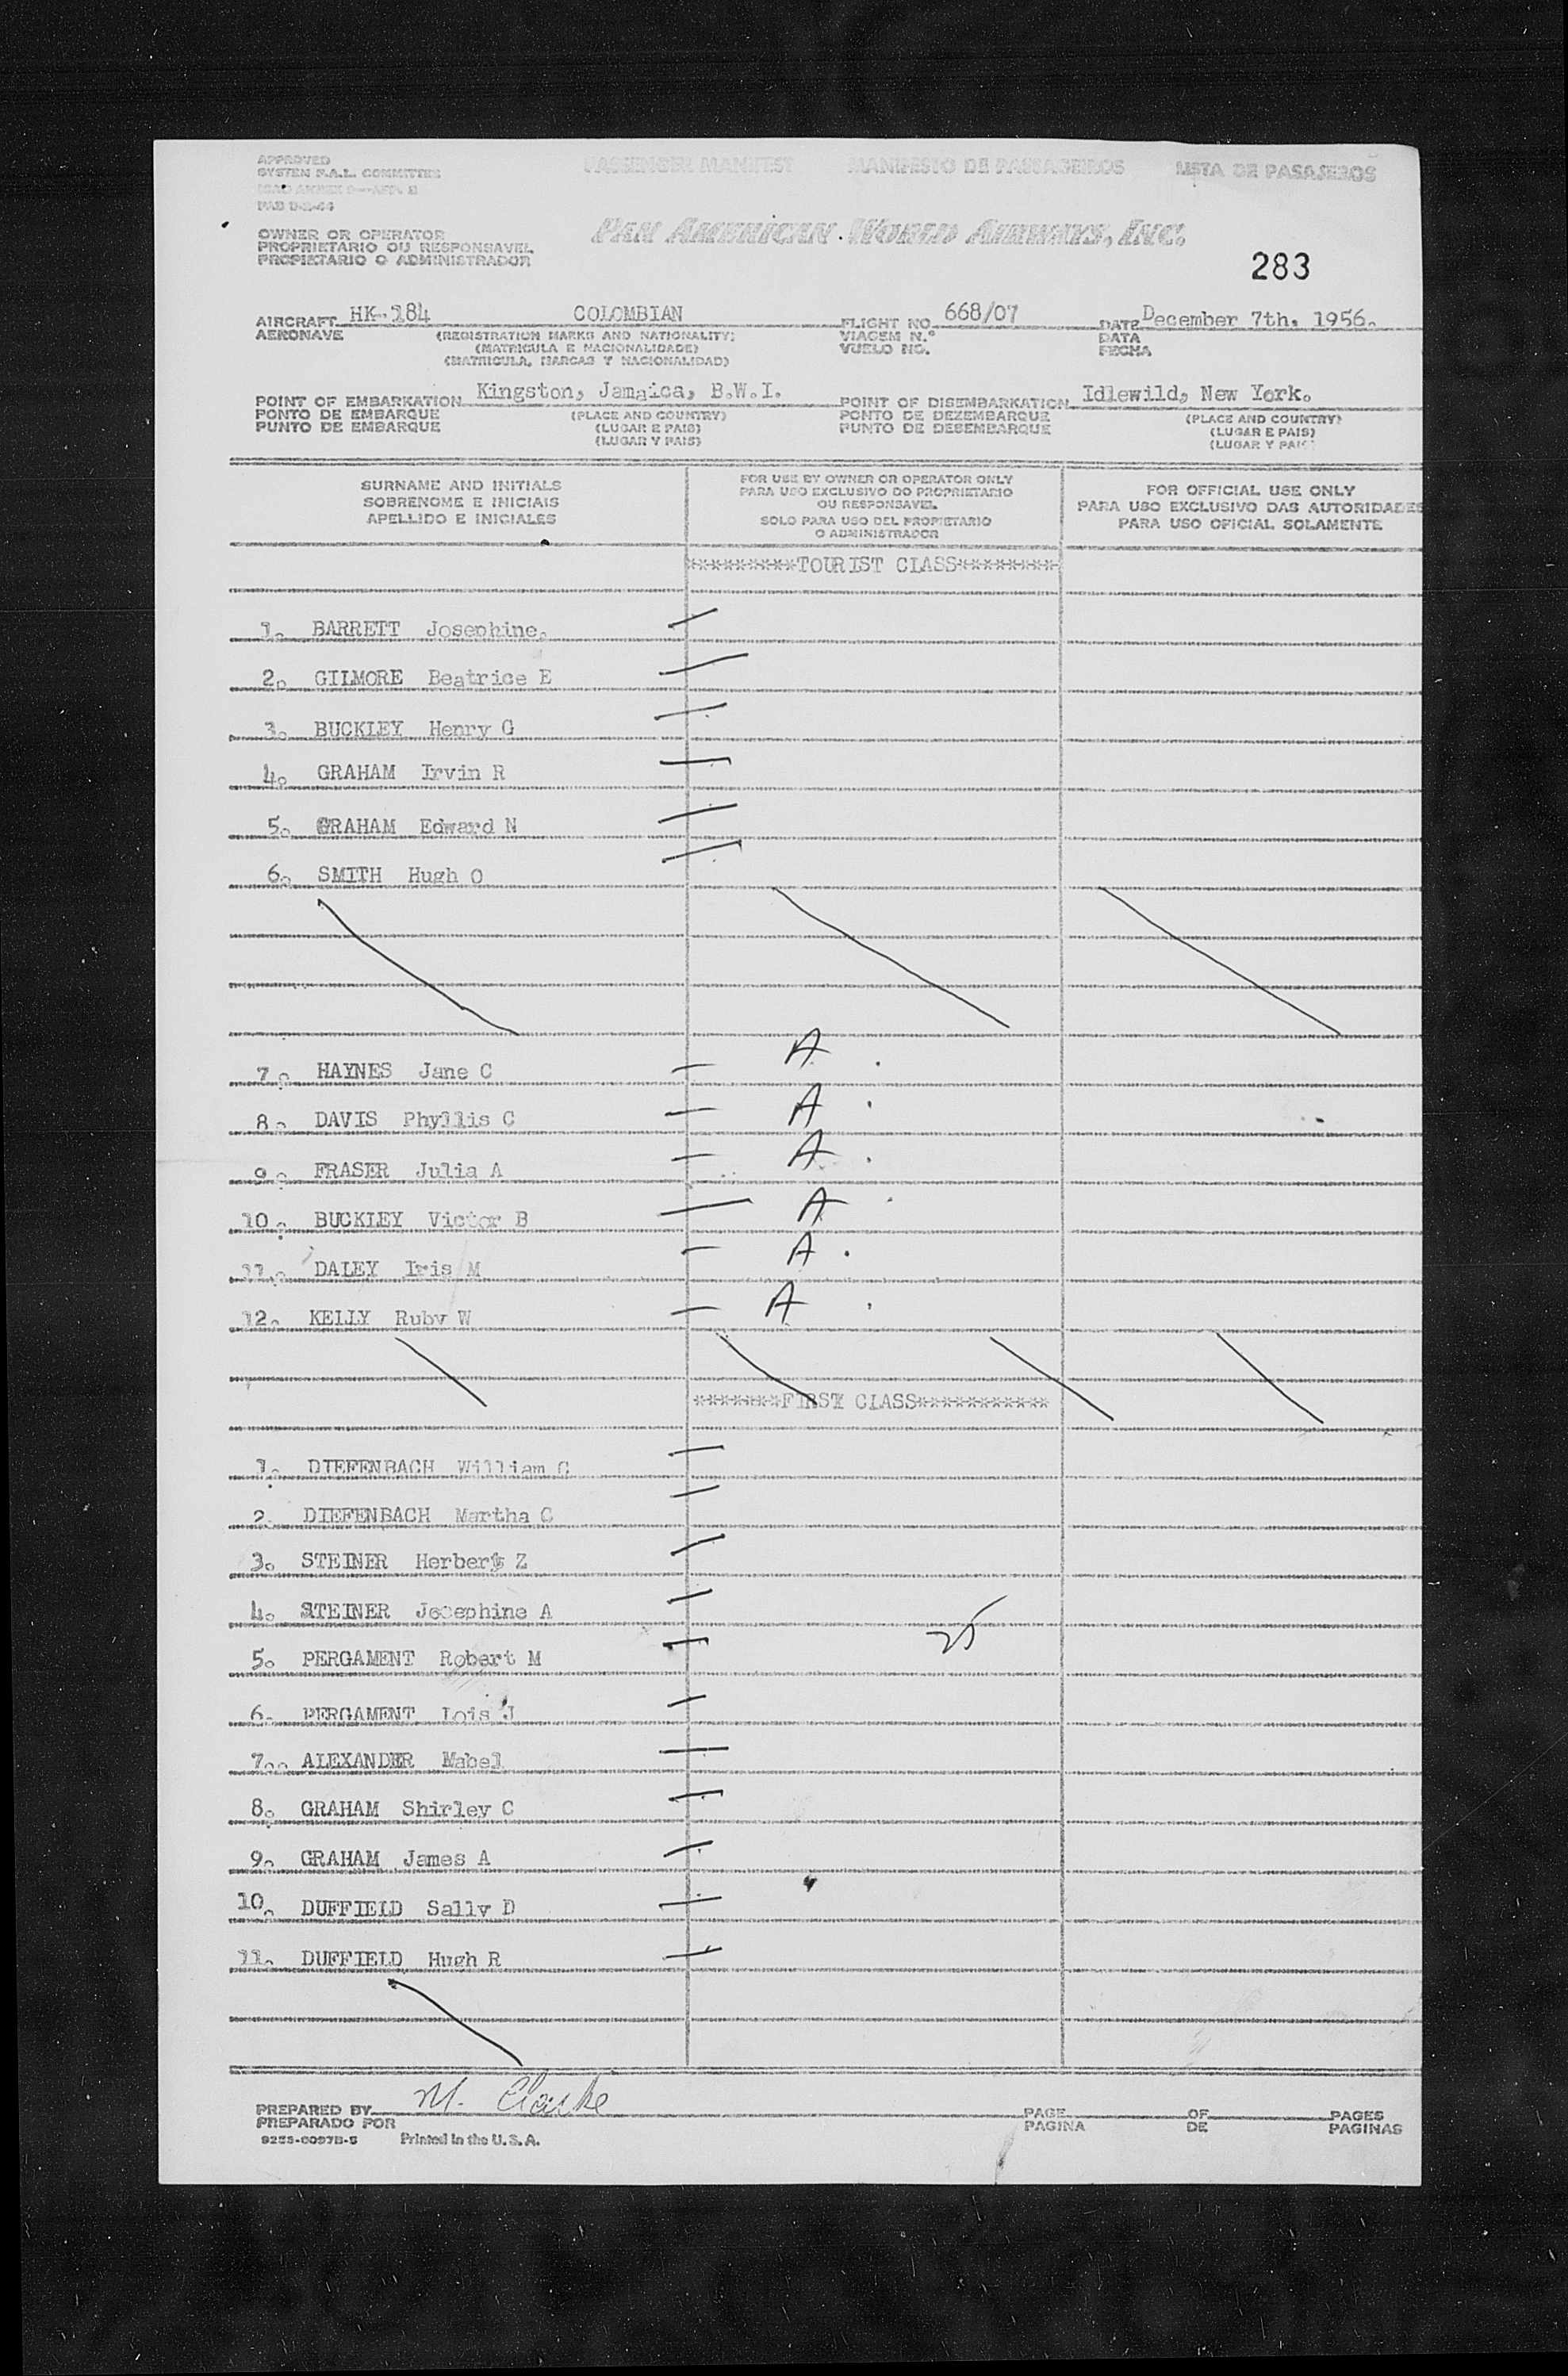 APPROVED
SYSTEM F.A.L. COMMITTEE
PASSENGER MANIFEST MANIFESTO DE PASSAGEIROS LISTA DE PASAJEROS
OWNER OR OPERATOR
PROPRIETARIO OU RESPONSAVEL
PROPIETARIO O ADMINISTRADOR
PAN AMERICAN WORLD AIRWAYS, INC.
283
AIRCRAFT HK-184 COLOMBIAN FLIGHT NO. 668/07 DATE December 7th, 1956.
AERONAVE (REGISTRATION MARKS AND NATIONALITY) VIAGEM N.º DATA
(MATRICULA E NACIONALIDADE) VUELO NO. FECHA
(MATRICULA, MARCAS Y NACIONALIDAD)
POINT OF EMBARKATION Kingston, Jamaica, B.W.I. POINT OF DISEMBARKATION Idlewild, New York.
PONTO DE EMBARQUE (PLACE AND COUNTRY) PONTO DE DEZEMBARQUE (PLACE AND COUNTRY)
PUNTO DE EMBARQUE (LUGAR E PAIS) PUNTO DE DESEMBARQUE (LUGAR E PAIS)
(LUGAR Y PAIS) (LUGAR Y PAIS)
SURNAME AND INITIALS
SOBRENOME E INICIAIS
APELLIDO E INICIALES
FOR USE BY OWNER OR OPERATOR ONLY
PARA USO EXCLUSIVO DO PROPRIETARIO
OU RESPONSAVEL
SOLO PARA USO DEL PROPIETARIO
O ADMINISTRADOR
FOR OFFICIAL USE ONLY
PARA USO EXCLUSIVO DAS AUTORIDADES
PARA USO OFICIAL SOLAMENTE
*********TOURIST CLASS*********
1. BARRETT Josephine.
2. GILMORE Beatrice E
3. BUCKLEY Henry G
4. GRAHAM Irvin R
5. GRAHAM Edward N
6. SMITH Hugh O
7. HAYNES Jane C A
8. DAVIS Phyllis C A
9. FRASER Julia A A
10. BUCKLEY Victor B A
11. DALEY Iris M A
12. KELLY Ruby W A
*******FIRST CLASS***********
1. DIEFENBACH William C
2. DIEFENBACH Martha C
3. STEINER Herbert Z
4. STEINER Josephine A
25
5. PERGAMENT Robert M
6. PERGAMENT Lois J
7. ALEXANDER Mabel
8. GRAHAM Shirley C
9. GRAHAM James A
10. DUFFIELD Sally D
11. DUFFIELD Hugh R
PREPARED BY M. Clarke PAGE OF PAGES
PREPARADO POR PAGINA DE PAGINAS
Printed in the U.S.A.